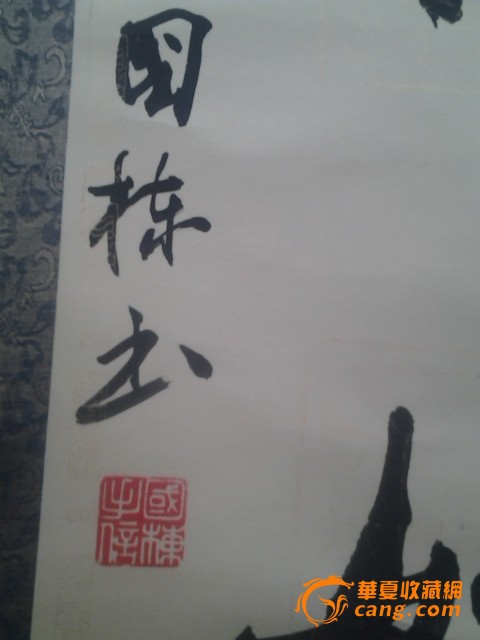 国栋书
國棟
手信
華夏收藏網
cang.com